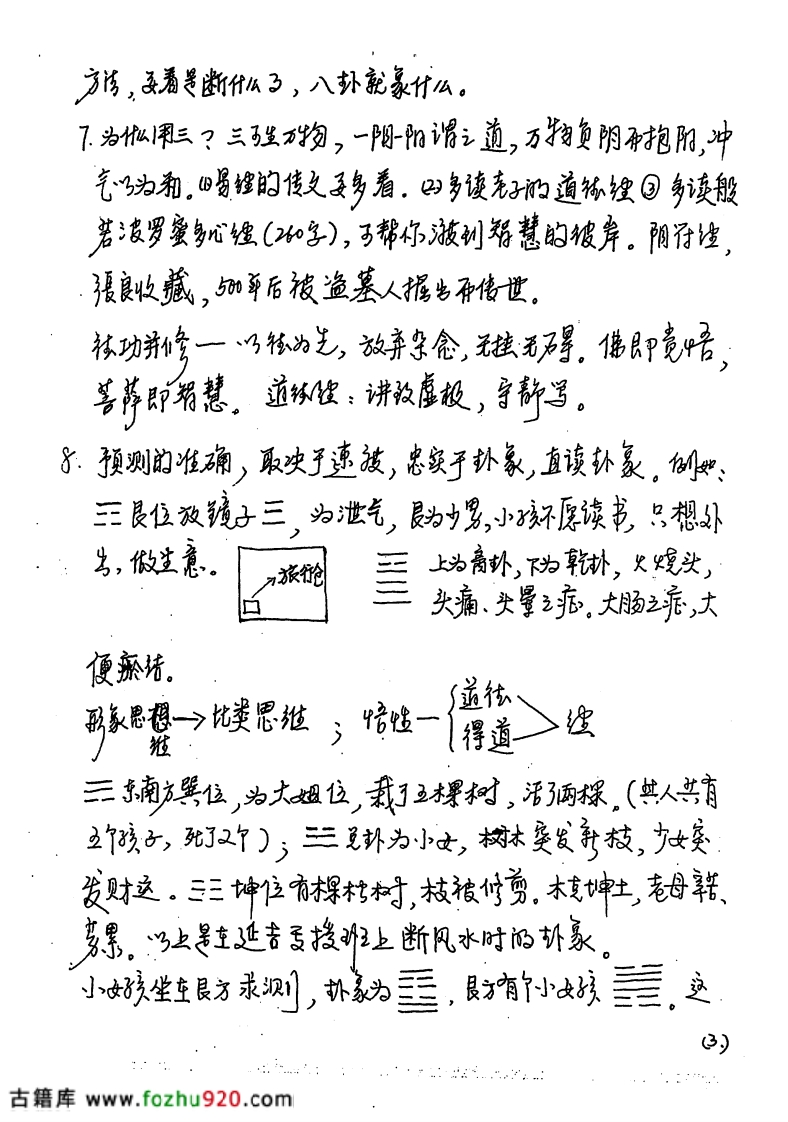 方法，要看是断什么了，八卦就象什么。
7. 为什么用三？三可生万物，一阴一阳谓之道，万物负阴而抱阳，冲
气以为和。⑴易经的传文要多看. ⑵多读老子的道德经 ③ 多读般
若波罗蜜多心经(260字)，可帮你渡到智慧的彼岸。阴符经，
張良收藏，500年后被盗墓人掘出而传世。
德功并修一以德为先，放弃杂念，无挂无碍。佛即觉悟，
菩萨即智慧。道德经：讲致虚极，守静笃。
8. 预测的准确，取决于速度，忠实于卦象，直读卦象。例如：
☶艮位放镜子☰，为泄气，艮为少男，小孩不愿读书，只想外
出，做生意。
旅行仓
上为离卦，下为乾卦，火烧头，
头痛、头晕之症。大肠之症，大
便瘀结。
形象思想维→比类思维；悟性一{道德 得道 > 经
东南方巽位，为大姐位，栽了五棵树，活了两棵。(共人共有
五个孩子，死了2个)；兑卦为小女，树木突发新枝，少女突
发财运。☷坤位有棵树，枝被修剪。木克坤土，老母辛苦、
劳累。以上是在延吉函授班上断风水时的卦象。
小女孩坐在艮方求测，卦象为，艮方有个小女孩。这
(3.)
古籍库 www.fozhu920.com